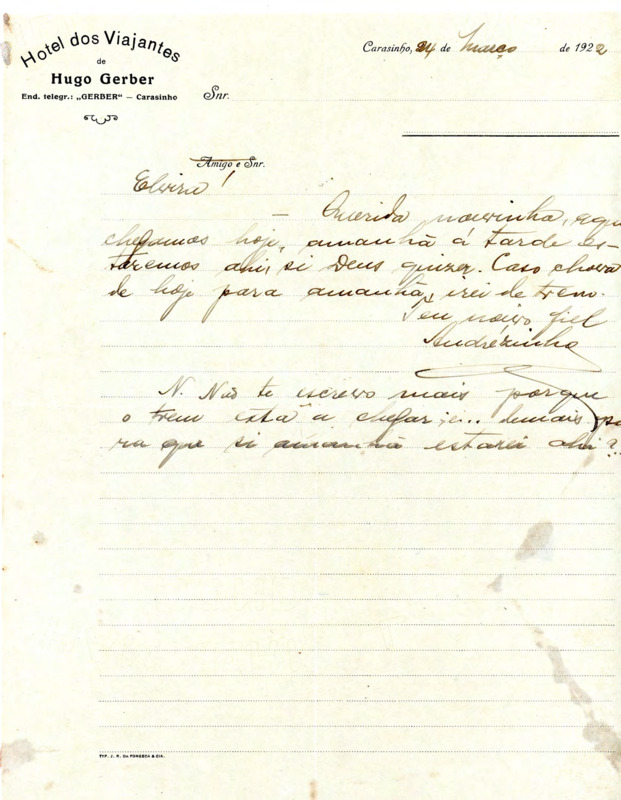 Hotel dos Viajantes
de
Hugo Gerber
End. telegr.: „GERBER" – Carasinho
Carasinho, 24 de Março de 1922
Snr.
Amigo e Snr.
Elvira!
— Querida noivinha, aqui
chegamos hoje, amanhã á tarde es-
taremos ahi, si Deus quizer. Caso chova
de hoje para amanhã, irei de trem.
Teu noivo fiel
Andrézinho
N. Não te escrevo mais porque
o trem está a chegar, e... demais pa
ra que si amanhã estarei ahi?..
TYP. J. R. DA FONSECA & CIA.